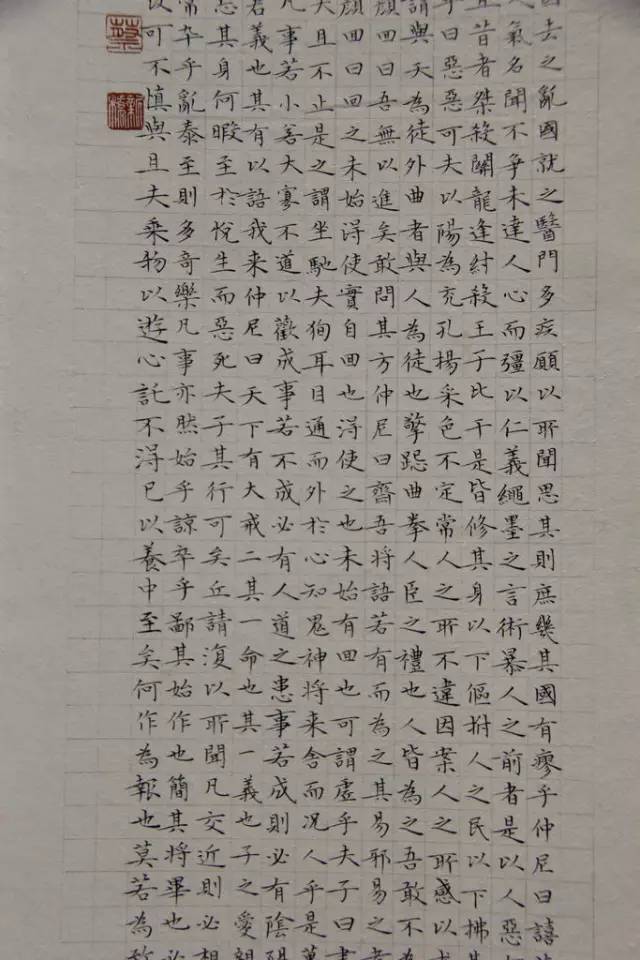 去之亂國就之醫門多疾願以所聞思其則庶幾其國有瘳乎仲尼曰譆
人氣名聞不爭未達人心而彊以仁義繩墨之言術暴人之前者是以人惡
且昔者桀殺關龍逢紂殺王子比干是皆修其身以下傴拊人之民以下拂其
乎曰惡惡可夫以陽為充孔揚采色不定常人之所不違因案人之所感以求
謂與天為徒外曲者與人為徒也擎跽曲拳人臣之禮也人皆為之吾敢不為
顏回曰吾無以進矣敢問其方仲尼曰齋吾將語若有而為之其易邪易之者
顏回曰回之未始得使實自回也得使之也未始有回也可謂虛乎夫子曰盡
夫且不止是之謂坐馳夫徇耳目通而外於心知鬼神將来舍而況人乎是萬
凡事若小若大寡不道以歡成事若不成必有人道之患事若成則必有陰陽
義也其有以語我来仲尼曰天下有大戒二其一命也其一義也子之愛親
忘其身何暇至於悅生而惡死夫子其行可矣丘請復以所聞凡交近則必相
常卒乎亂泰至則多奇樂凡事亦然始乎諒卒乎鄙其始作也簡其將畢也必
可不慎與且夫乘物以遊心託不得已以養中至矣何作為報也莫若為致